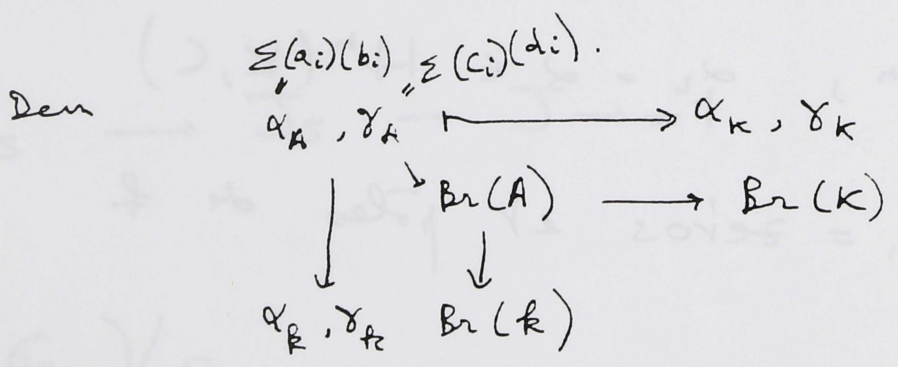 Σ(aᵢ)(bᵢ) Σ(cᵢ)(dᵢ).
Dem α_A, γ_A ⟼ α_K, γ_K
Br(A) → Br(K)
α_k, γ_k Br(k)